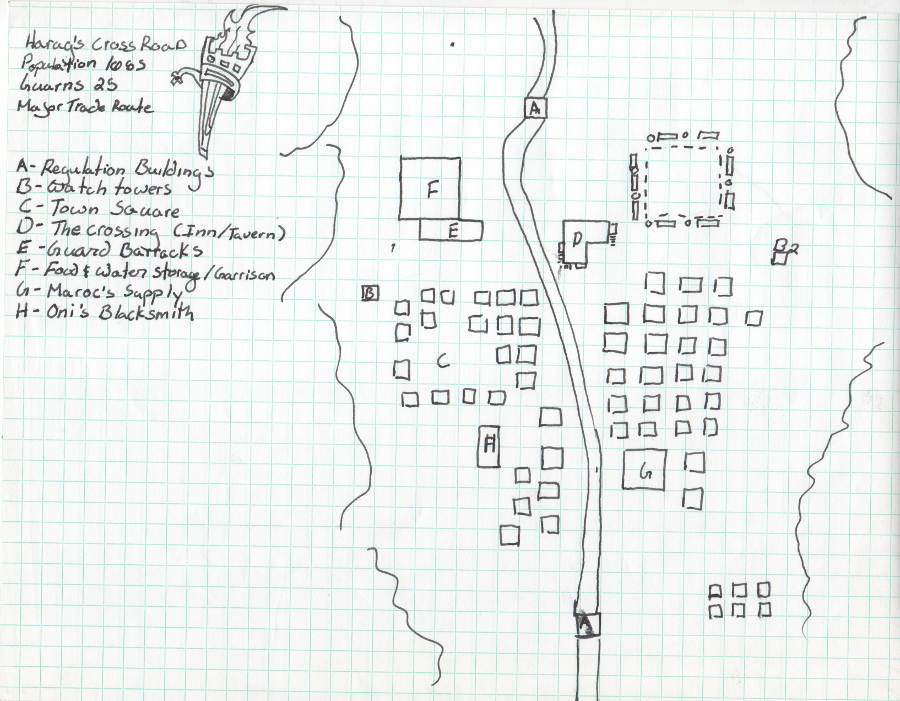 Harag's Cross Road
Population 1085
Guarns 25
Major Trade Route
A - Regulation Buildings
B - Watch towers
C - Town Square
D - The Crossing (Inn/Tavern)
E - Guard Barracks
F - Food & Water Storage/Garrison
G - Maroc's Supply
H - Oni's Blacksmith
A
F
E
D
B2
B
C
H
G
A